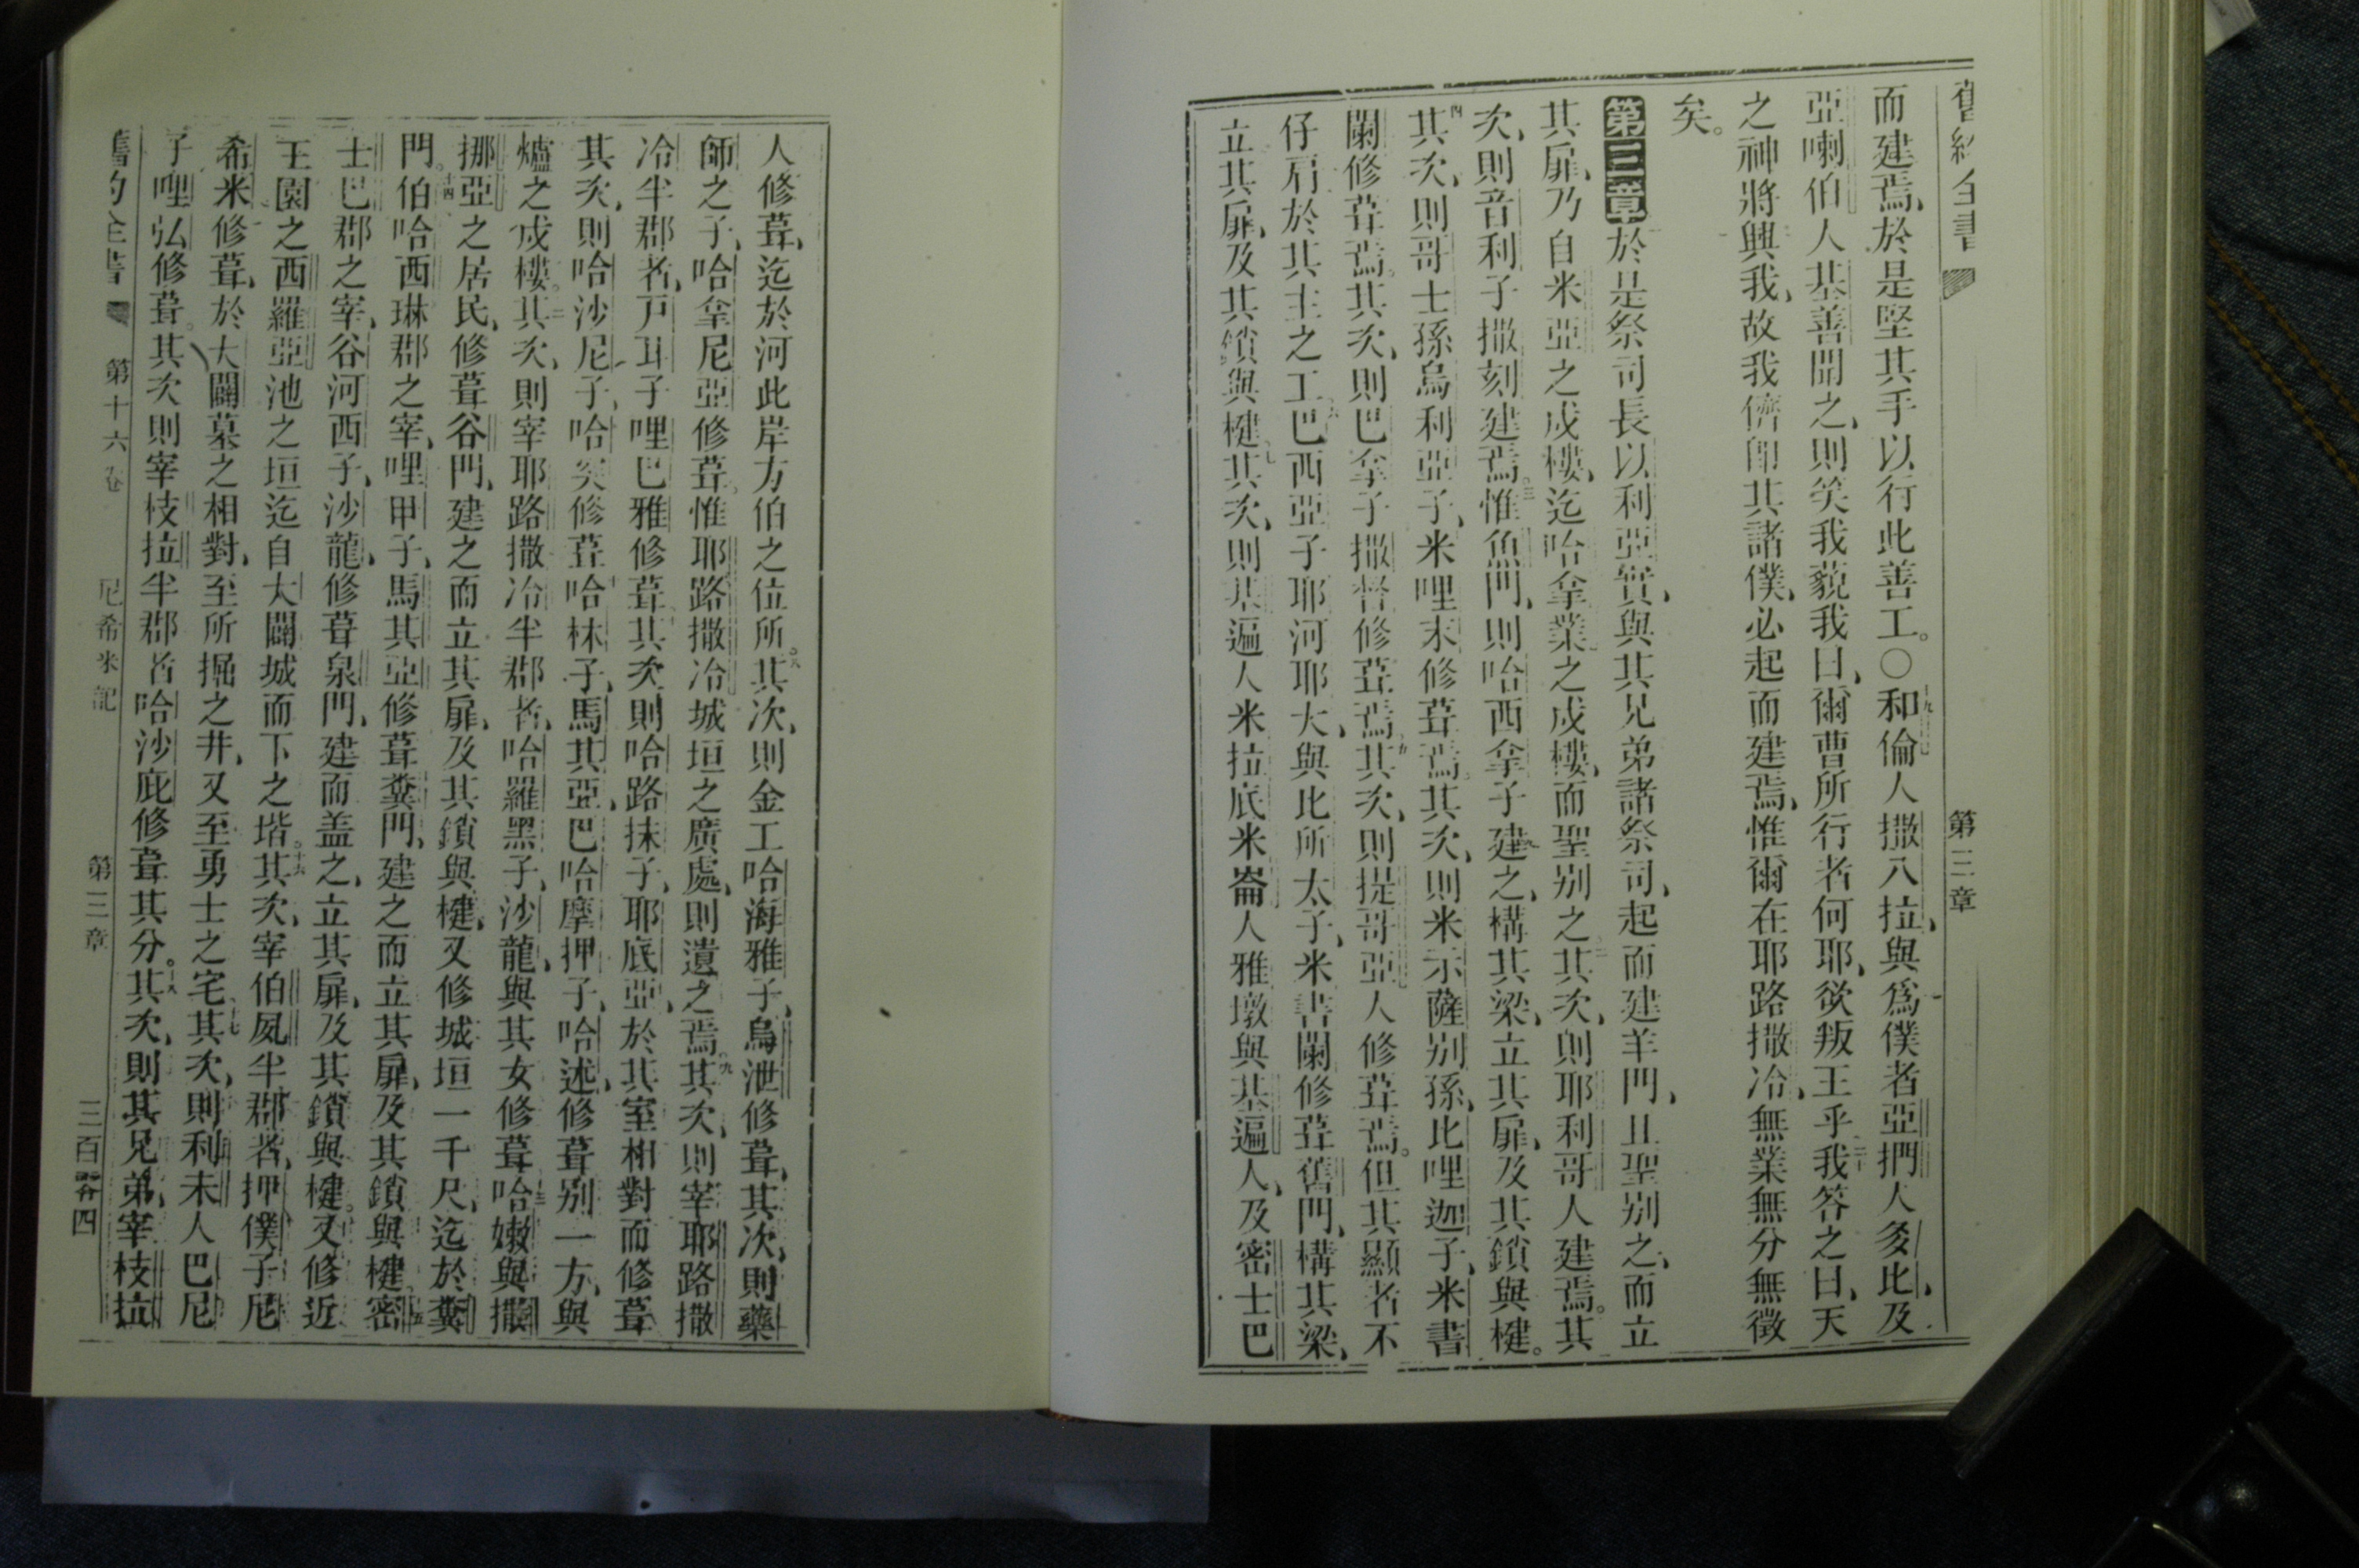 舊約全書 第三章
而建焉、於是堅其手以行此善工。○十九和倫人撒八拉、與爲僕者亞捫人多比、及
亞喇伯人基善聞之、則笑我藐我曰、爾曹所行者何耶、欲叛王乎、二十我答之曰、天
之神將興我、故我儕卽其諸僕、必起而建焉、惟爾在耶路撒冷、無業無分無徵
矣。
第三章 於是祭司長以利亞實、與其兄弟諸祭司、起而建羊門、且聖別之、而立
其扉、乃自米亞之戍樓、迄哈拿業之戍樓、而聖別之、二其次、則耶利哥人建焉。其
次、則音利子撒刻建焉。三惟魚門、則哈西拿子建之、構其梁、立其扉、及其鎖與楗。
四其次、則哥士孫烏利亞子、米哩末修葺焉。其次、則米示薩別孫、比哩迦子、米書
闌修葺焉。其次、則巴拿子撒督修葺焉、五其次、則提哥亞人修葺焉。但其顯者不
仔肩於其主之工、六巴西亞子耶河耶大、與比所太子、米書闌修葺舊門、構其梁、
立其扉、及其鎖與楗、七其次、則基遍人米拉底、米崙人雅墩、與基遍人、及密士巴
人修葺、迄於河此岸方伯之位所。八其次、則金工哈海雅子、烏泄修葺、其次、則藥
師之子、哈拿尼亞修葺。惟耶路撒冷城垣之廣處、則遺之焉。九其次、則宰耶路撒
冷半郡者、戶耳子哩巴雅修葺、十其次、則哈路抹子、耶底亞、於其室相對而修葺
其次、則哈沙尼子、哈突修葺、十一哈林子、馬其亞、巴哈摩押子、哈述、修葺別一方、與
爐之戍樓。十二其次、則宰耶路撒冷半郡者、哈羅黑子、沙龍、與其女修葺、十三哈嫩與撒
挪亞之居民、修葺谷門、建之而立其扉、及其鎖與楗、又修城垣一千尺、迄於糞
門。十四伯哈西琳郡之宰、哩甲子、馬其亞修葺糞門、建之而立其扉、及其鎖與楗。十五密
士巴郡之宰、谷河西子、沙龍、修葺泉門、建而盖之、立其扉、及其鎖與楗。又修近
王園之西羅亞池之垣、迄自大闢城而下之堦。十六其次、宰伯夙半郡者、押僕子尼
希米修葺、於大闢墓之相對、至所掘之井、又至勇士之宅、十七其次、則利未人巴尼
子哩弘修葺。其次則宰枝拉半郡者哈沙庇修葺其分。十八其次、則其兄弟、宰枝拉
舊約全書 第十六卷 尼希米記 第三章 三百零四